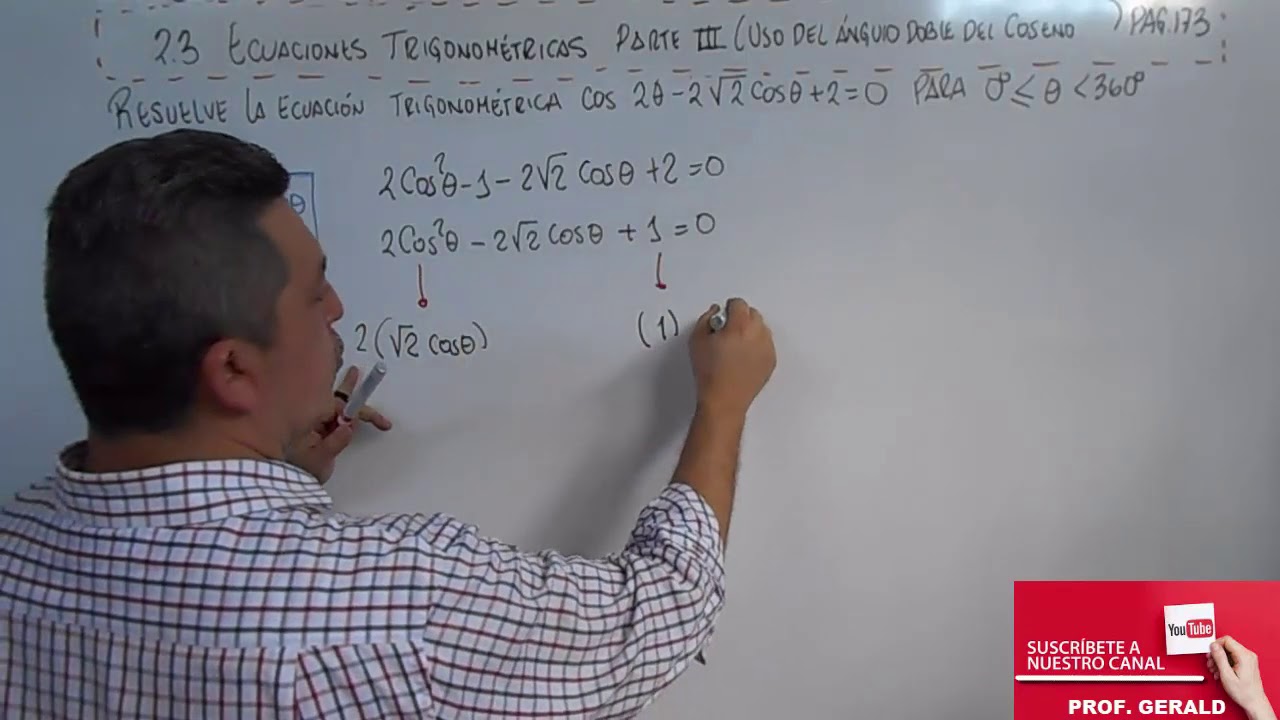 2.3 ECUACIONES TRIGONOMÉTRICAS PARTE III (USO DEL ÁNGULO DOBLE DEL COSENO ) PAG.173
RESUELVE LA ECUACIÓN TRIGONOMÉTRICA COS 2θ-2√2 COSθ+2=0 PARA 0°≤θ<360°
2Cos²θ-1-2√2 Cosθ+2=0
θ
2Cos²θ-2√2 Cosθ+1=0
2(√2 Cosθ) (1)
YouTube
SUSCRÍBETE A
NUESTRO CANAL
PROF. GERALD